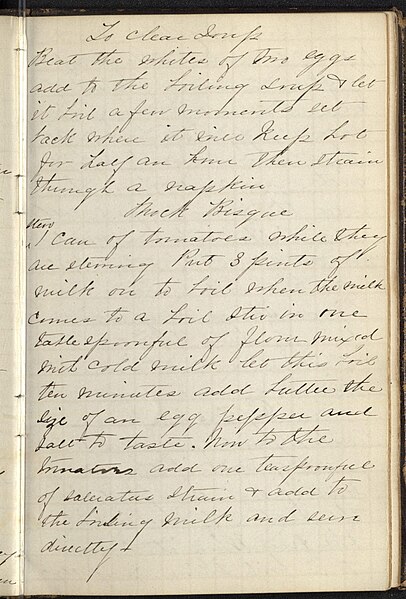 To clear Soup
Beat the whites of two eggs
add to the boiling Soup & let
it boil a few moments set
back when it will keep hot
for half an hour then strain
through a napkin
Mock Bisque
Stew
1 Can of tomatoes while they
are stewing Put 3 pints of
milk on to boil when the milk
comes to a boil stir in one
tablespoonful of flour mixed
with cold milk let this boil
ten minutes add butter the
size of an egg pepper and
salt to taste. Now to the
tomatoes add one teaspoonful
of saleratus strain & add to
the boiling milk and serve
directly